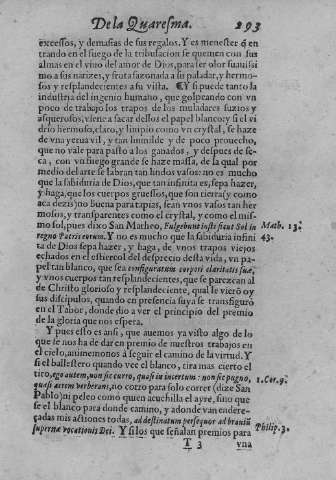 De la Quaresma. 293
excessos, y demasias de sus regalos. Y es menester q̃ en
trando en el fuego de la tribulacion se quemen con sus
almas en el viuo del amor de Dios, para ser olor suauissi
mo a sus narizes, y fruta sazonada a su paladar, y hermo-
sos y resplandecientes a su vista. ¶ Y si puede tanto la
industria del ingenio humano, que golpeando con vn
poco de trabajo los trapos de los muladares suzios y
asquerosos, viene a sacar dellos el papel blanco: y si el vi
drio hermoso, claro, y limpio como vn crystal, se haze
de vna yerua vil, y tan humilde y de poco prouecho,
que no vale para pasto a los ganados, y despues de se-
ca, con vn fuego grande se haze massa, de la qual por
medio del arte se labran tan lindos vasos: no es mucho
que la sabiduria de Dios, que tan infinita es, sepa hazer,
y haga, que los cuerpos gruessos, que son tierra (y como
aca dezis) no buena para tapias, sean vnos vasos tan her
mosos, y transparentes como el crystal, y como el mis-
mo sol, pues dixo San Matheo, Fulgebunt iusti sicut Sol in
regno Patris eorum. Y no es mucho que la sabiduria infini
ta de Dios sepa hazer, y haga, de vnos trapos viejos
echados en el estiercol del desprecio desta vida, vn pa-
pel tan blanco, que sea configuratum corpori claritatis suæ,
y vnos cuerpos tan resplandecientes, que se parezcan al
de Christo glorioso y resplandeciente, qual le vierõ oy
sus discipulos, quando en presencia suya se transfiguró
en el Tabor, donde dio a ver el principio del premio
de la gloria que nos espera.
Y pues esto es ansi, que auemos ya visto algo de lo
que se nos ha de dar en premio de nuestros trabajos en
el cielo, animemonos à seguir el camino de la virtud. Y
si el ballestero quando vee el blanco, tira mas cierto el
tiro, ego autem, non sic curro, quasi in incertum: non sic pugno,
quasi aerem verberans, no corro para solo correr (dize San
Pablo) ni peleo como quien acuchilla el ayre, sino que
se el blanco para donde camino, y adonde van endere-
çadas mis actiones todas, ad destinatum persequor ad brauiũ
supernæ vocationis Dei. Y si los que señalan premios para
T 3 vna
Math. 13.
43.
1. Cor. 9.
Philip. 3.